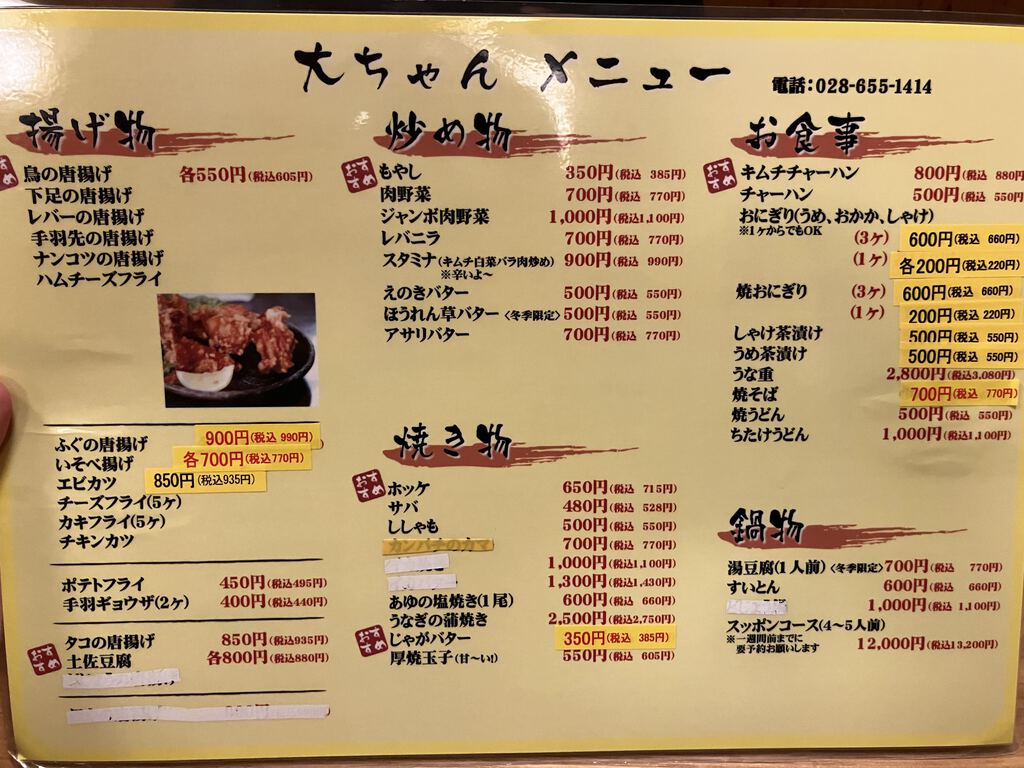 大ちゃん メニュー
電話:028-655-1414
揚げ物
おすすめ
鳥の唐揚げ 各550円(税込605円)
下足の唐揚げ
レバーの唐揚げ
手羽先の唐揚げ
ナンコツの唐揚げ
ハムチーズフライ
ふぐの唐揚げ 900円(税込 990円)
いそべ揚げ 各700円(税込770円)
エビカツ 850円(税込935円)
チーズフライ(5ヶ)
カキフライ(5ヶ)
チキンカツ
ポテトフライ 450円(税込495円)
手羽ギョウザ(2ヶ) 400円(税込440円)
タコの唐揚げ 850円(税込935円)
おすすめ
土佐豆腐 各800円(税込880円)
炒め物
おすすめ
もやし 350円(税込 385円)
肉野菜 700円(税込 770円)
ジャンボ肉野菜 1,000円(税込1,100円)
レバニラ 700円(税込 770円)
スタミナ(キムチ白菜バラ肉炒め) 900円(税込 990円)
※辛いよ~
えのきバター 500円(税込 550円)
ほうれん草バター〈冬季限定〉 500円(税込 550円)
アサリバター 700円(税込 770円)
焼き物
おすすめ
ホッケ 650円(税込 715円)
サバ 480円(税込 528円)
ししゃも 500円(税込 550円)
カンパチのカマ 700円(税込 770円)
1,000円(税込1,100円)
1,300円(税込1,430円)
あゆの塩焼き(1尾) 600円(税込 660円)
うなぎの蒲焼き 2,500円(税込2,750円)
おすすめ
じゃがバター 350円(税込 385円)
厚焼玉子(甘~い!) 550円(税込 605円)
お食事
おすすめ
キムチチャーハン 800円(税込 880円
チャーハン 500円(税込 550円
おにぎり(うめ、おかか、しゃけ)
※1ヶからでもOK (3ヶ) 600円(税込 660円)
(1ヶ) 各200円(税込220円)
焼おにぎり (3ヶ) 600円(税込 660円)
(1ヶ) 200円(税込 220円)
しゃけ茶漬け 500円(税込 550円)
うめ茶漬け 500円(税込 550円)
うな重 2,800円(税込3,080円)
焼そば 700円(税込 770円)
焼うどん 500円(税込 550円)
ちたけうどん 1,000円(税込1,100円)
鍋物
湯豆腐(1人前)〈冬季限定〉 700円(税込 770円)
すいとん 600円(税込 660円)
1,000円(税込 1,100円)
スッポンコース(4~5人前)
※一週間前までに
要予約お願いします 12,000円(税込13,200円)